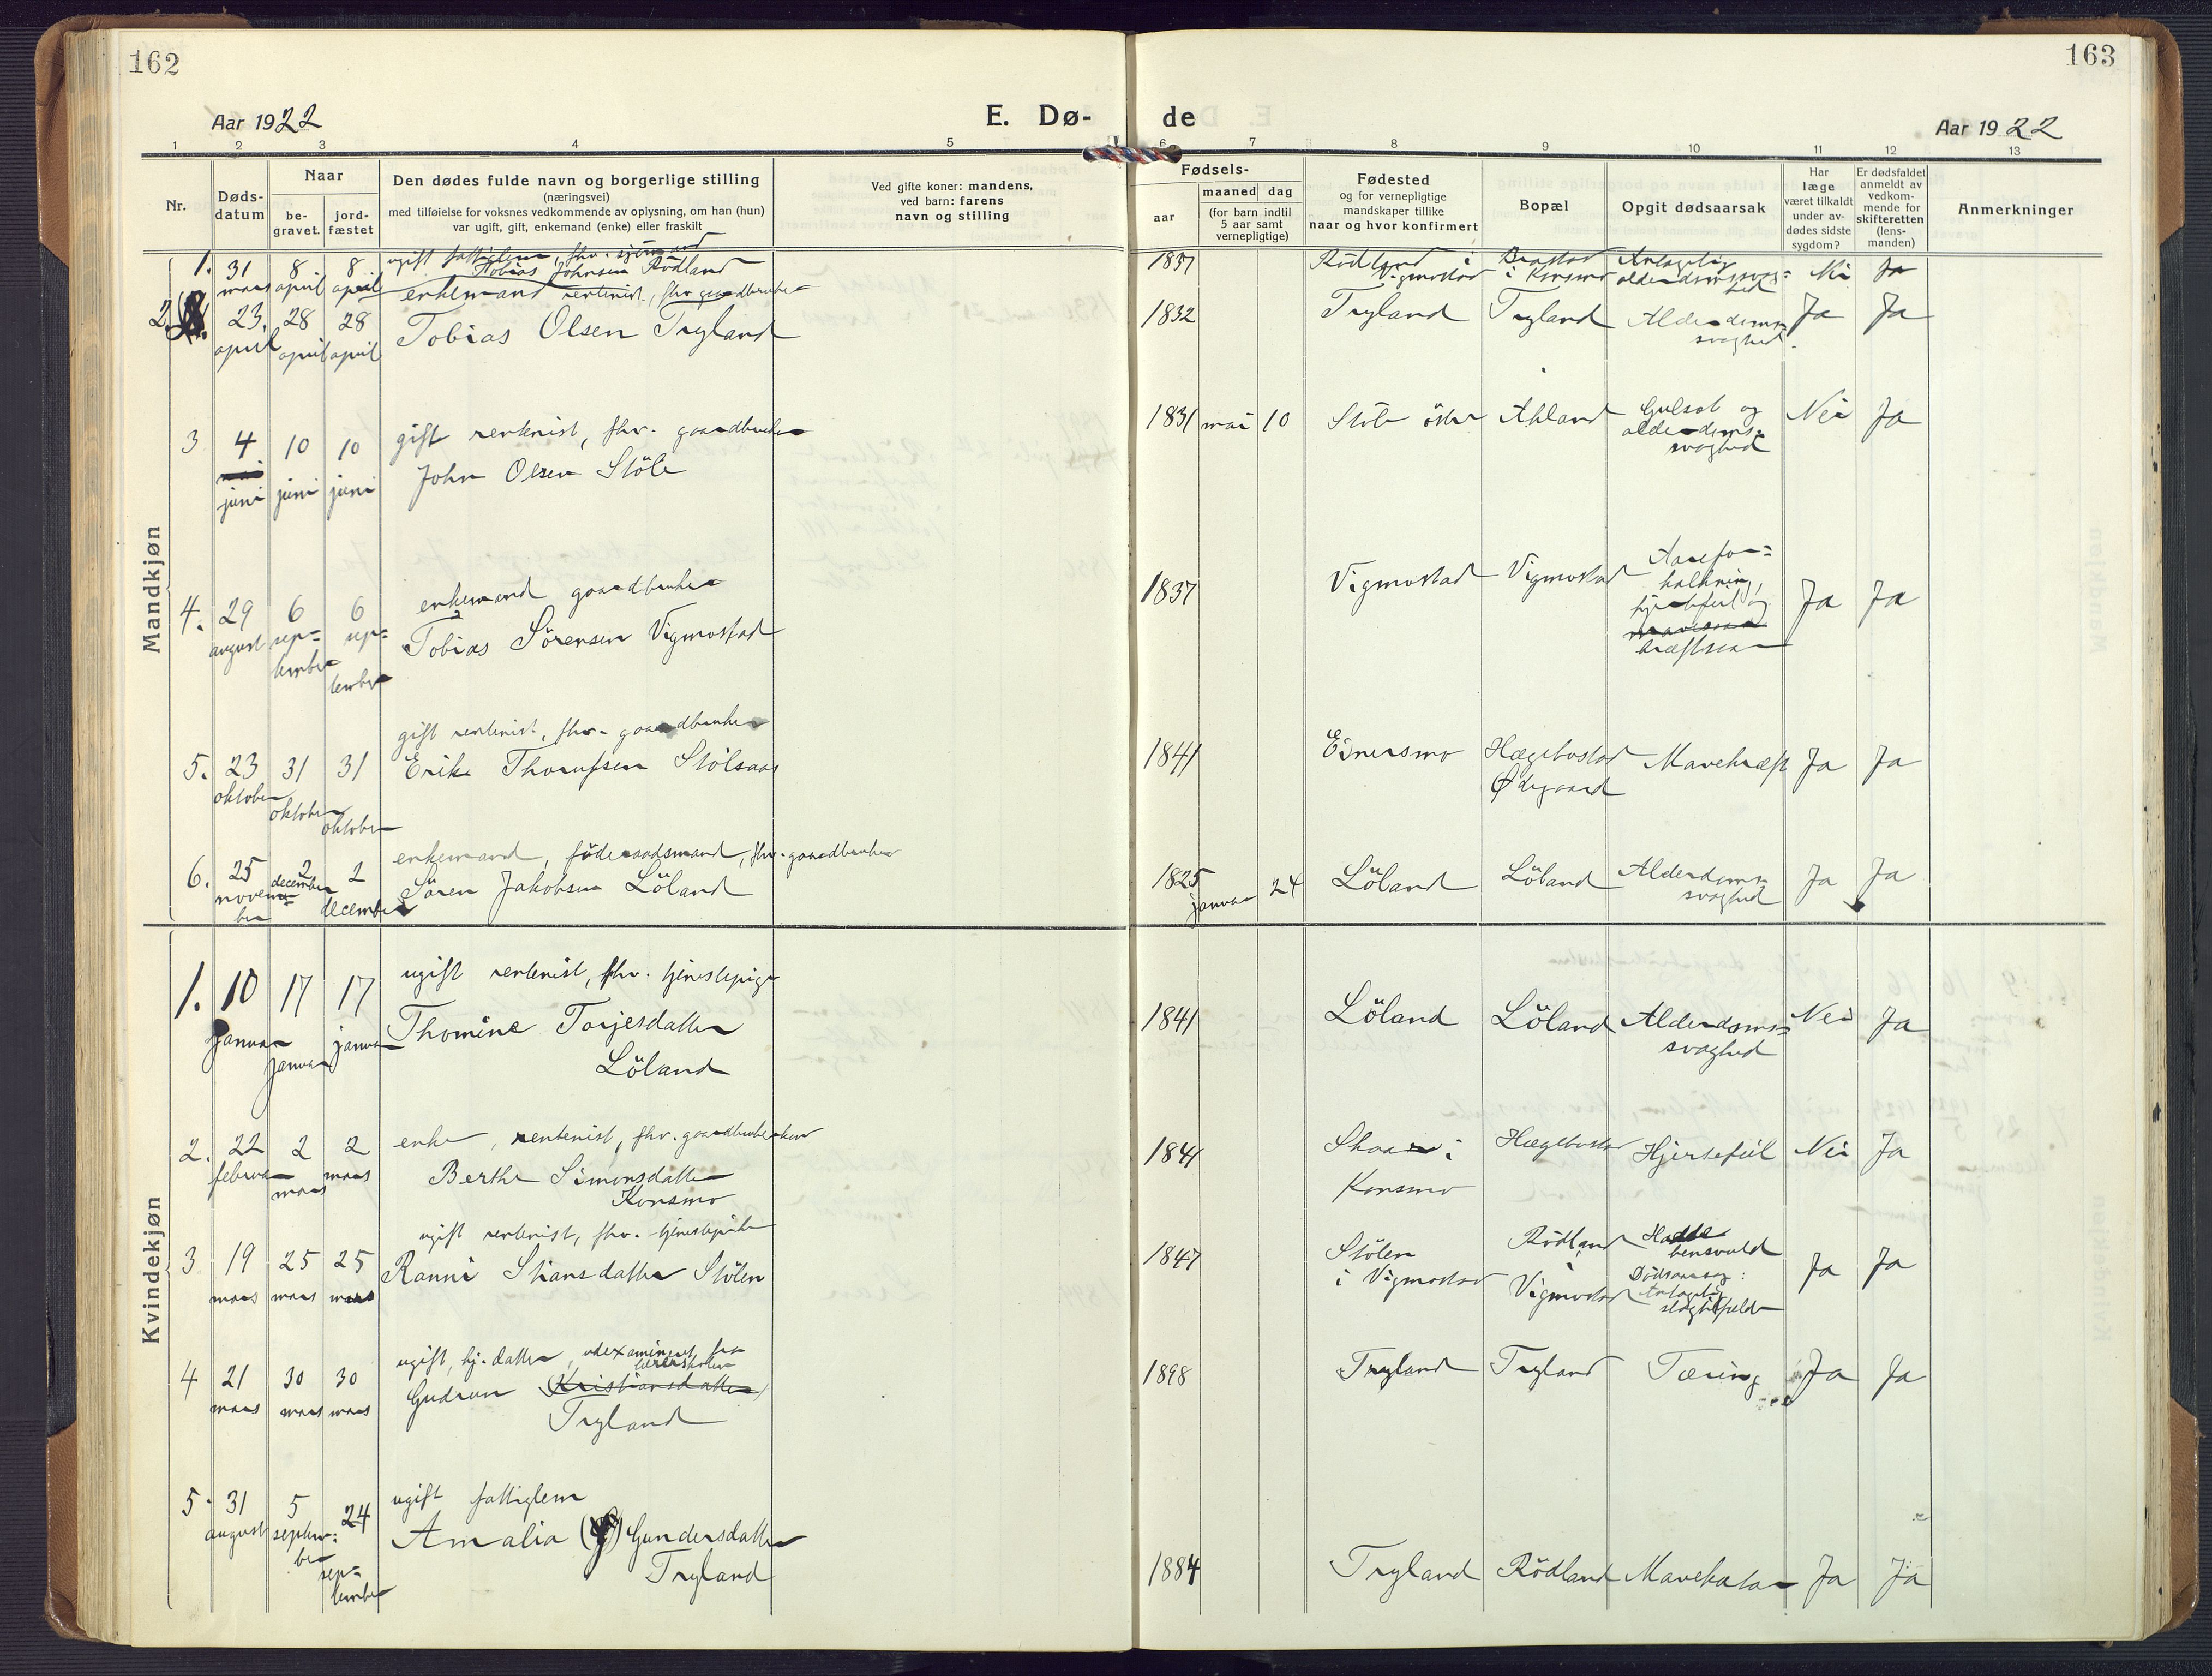 162
163
Aar 1922
E. Dø-
de
Aar 1922
1 2 3 4 5 6 7 8 9 10 11 12 13
Nr.
Døds-
datum
Naar
be-
gravet.
jord-
fæstet
Den dødes fulde navn og borgerlige stilling
(næringsvei)
med tilføielse for voksnes vedkommende av oplysning, om han (hun)
var ugift, gift, enkemand (enke) eller fraskilt
Ved gifte koner: mandens,
ved barn: farens
navn og stilling
Fødsels-
aar
maaned dag
(for barn indtil
5 aar samt
vernepligtige)
Fødested
og for vernepligtige
mandskaper tillike
naar og hvor konfirmert
Bopæl
Opgit dødsaarsak
Har
læge
været tilkaldt
under av-
dødes sidste
sygdom?
Er dødsfaldet
anmeldt av
vedkom-
mende for
skifteretten
(lens-
manden)
Anmerkninger
Mandkjøn
1. 31 mars 8 april 8 april
ugift fattiglem, fhv. sjömand
Tobias Johnsen Rödland
1837 Rödland i Vigmostad
i Konsmo
Antagelig alderdomssvaghed
Nei Ja
2. 23. april 28 april 28 april
enkemand rentenist, fhv gaardbruker
Tobias Olsen Tryland
1832 Tryland Tryland Alderdoms-
svaghed.
Ja Ja
3 4 juni 10 juni 10 juni
gift rentenist, fhv. gaardbruker
John Olsen Støle
1831 mai 10 Støle östre Ahland Gulsot og
alderdoms-
svaghed
Nei Ja
4. 29 august 6 sep=
tember 6 sep=
tember
enkemand gaardbruker
Tobias Sörensen Vigmostad
1837 Vigmostad Vigmostad Aarefor=
kalkning,
hjertefeil og
kræftsaar
Ja Ja
5. 23 oktober 31 oktober 31 oktober
gift rentenist, fhv. gaardbruker
Erik Stölsaas
1841 Eidnersmo Hægebostad
Ødegaard
Mavekræft Ja Ja
6. 25 novem=
ber 2 december 2 december
enkemand, föderaadsmand, fhv. gaardbruker
Sören Jakobsen Löland
1825 januar 24 Löland Löland Alderdoms-
svaghed
Ja Ja
Kvindekjøn
1. 10 januar 17 januar 17 januar
ugift rentenist, fhv. tjenestepige
Thomine Torjesdatter
Löland
1841 Löland Löland Alderdoms=
svaghed
Nei Ja
2. 22 februar 2 mars 2 mars
enke, rentenist, fhv. gaardbrukerkone
Berthe Simonsdatter
Konsmo
1841 Skaar i
Konsmo
Hægebostad Hjertefeil Nei Ja
3 19 mars 25 mars 25 mars
ugift rentenist, fhv. tjenestepike
Ranni Stiansdatter Stölen
1847 Stölen
i Vigmostad
Rödland
i
Vigmostad
Hadde
bensvuld
Dödsaarsag:
Antagelig
slagtilfelde
Ja Ja
4 21 mars 30 mars 30 mars
ugift, hj. datter, udexamineret fra
lærerskolen
Gudrun (Kristiansdatter)
Tryland
1898 Tryland Tryland Tæring Ja Ja
5. 31 august 5 septem=
ber 24 sep=
tember
ugift fattiglem
Amalia Gundersdatter
Tryland
1884 Tryland Rödland Mavekatar Ja Ja